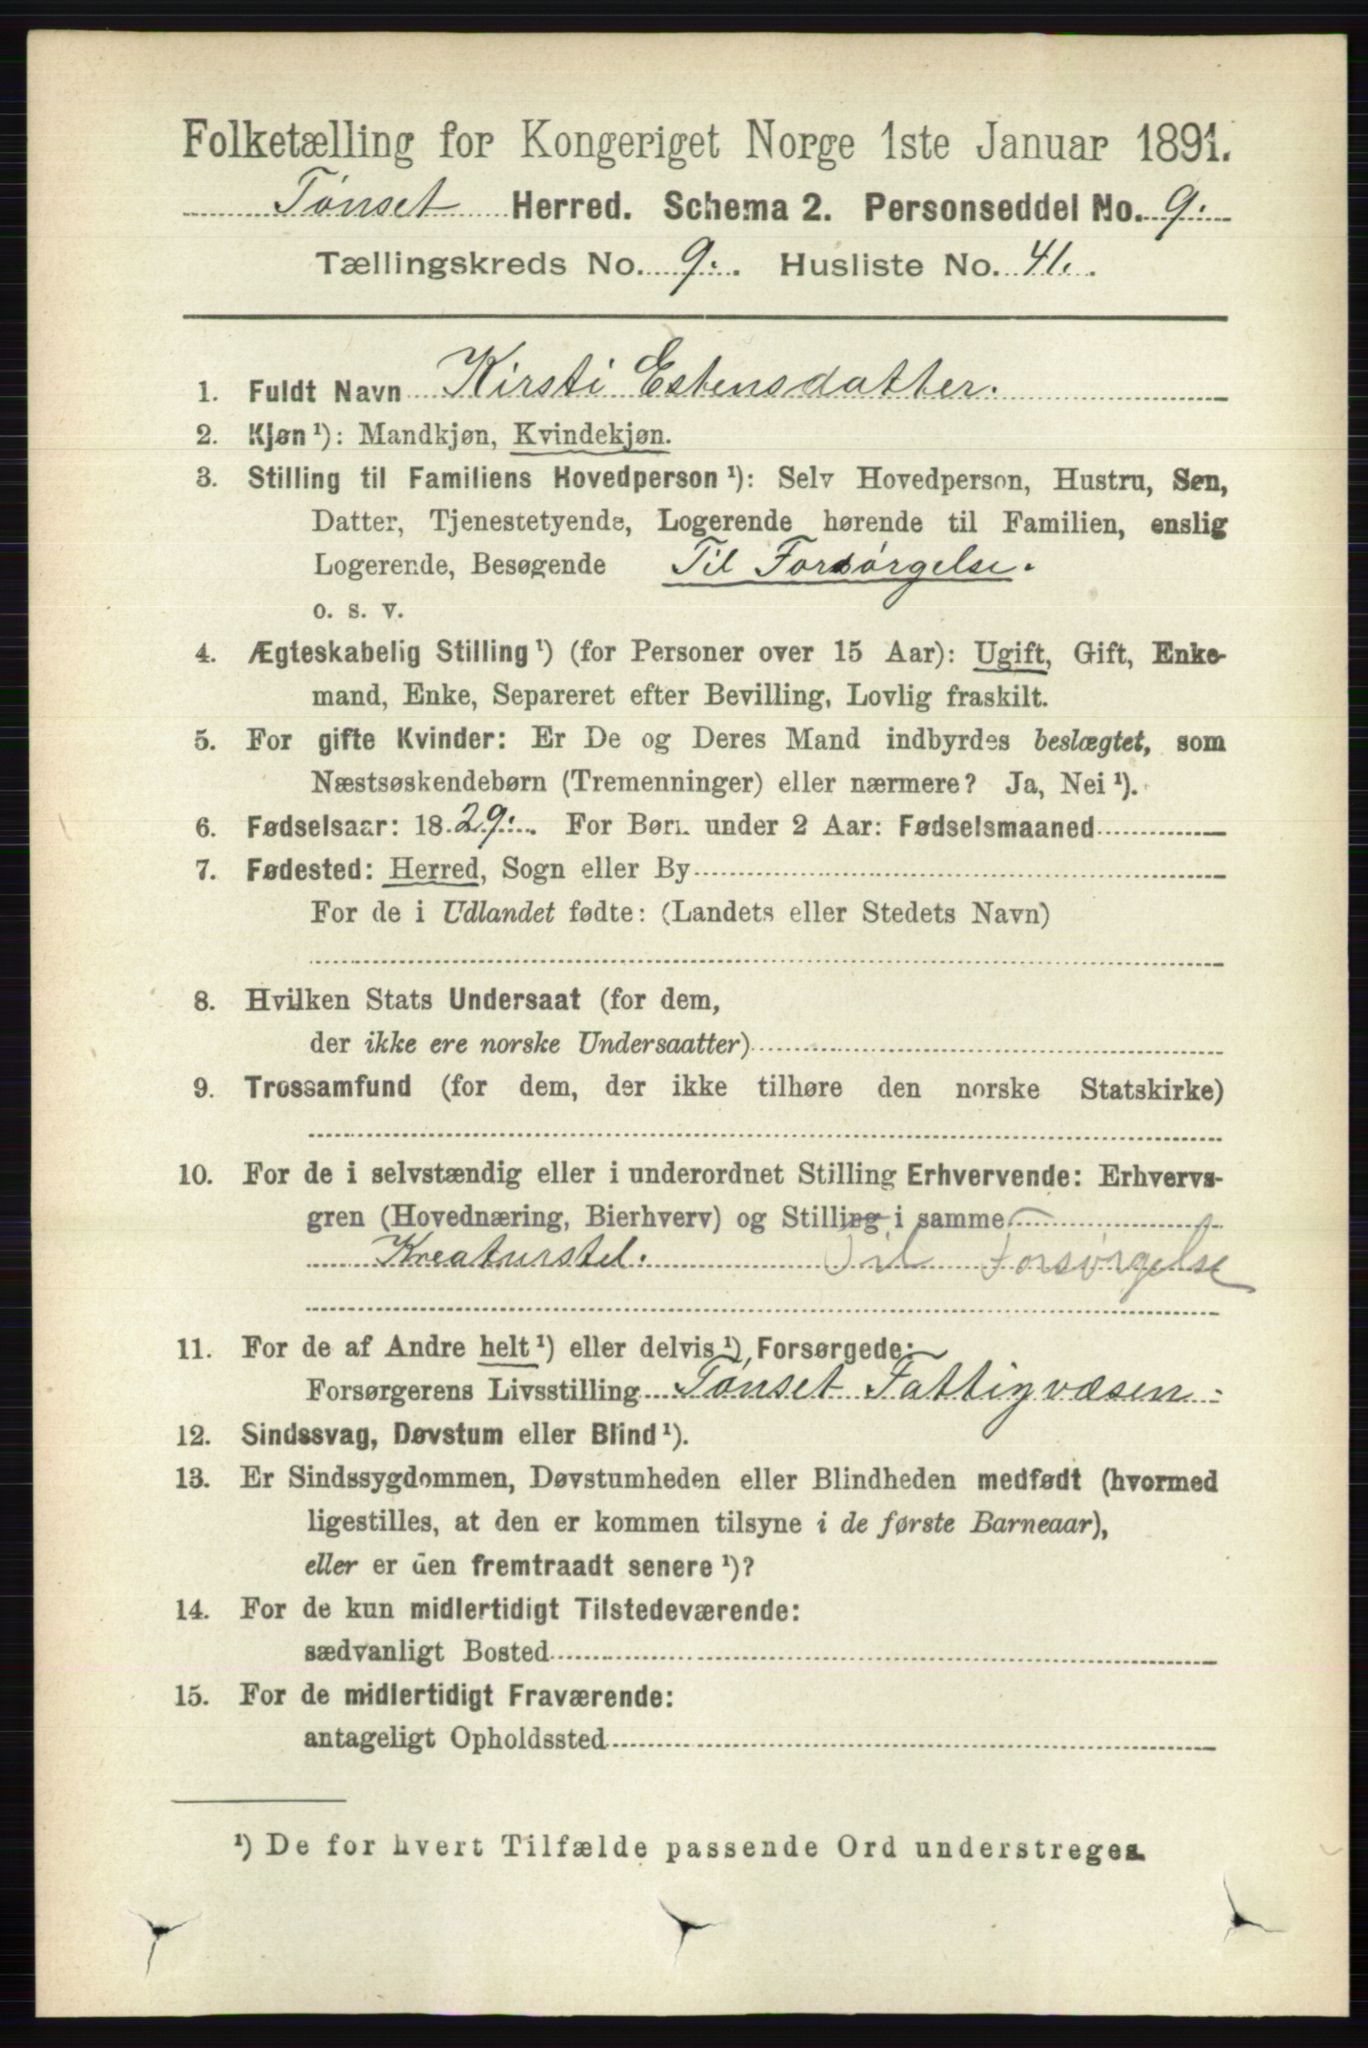 Folketælling for Kongeriget Norge 1ste Januar 1891.
Tønset Herred. Schema 2. Personseddel No. 9.
Tællingskreds No. 9. Husliste No. 41.
1. Fuldt Navn Kirsti Estensdatter.
2. Kjøn ¹): Mandkjøn, Kvindekjøn.
3. Stilling til Familiens Hovedperson ¹): Selv Hovedperson, Hustru, Søn,
Datter, Tjenestetyende, Logerende hørende til Familien, enslig
Logerende, Besøgende Til Forsørgelse.
o. s. v.
4. Ægteskabelig Stilling ¹) (for Personer over 15 Aar): Ugift, Gift, Enke-
mand, Enke, Separeret efter Bevilling, Lovlig fraskilt.
5. For gifte Kvinder: Er De og Deres Mand indbyrdes beslægtet, som
Næstsøskendebørn (Tremenninger) eller nærmere? Ja, Nei ¹).
6. Fødselsaar: 1829. For Børn under 2 Aar: Fødselsmaaned
7. Fødested: Herred, Sogn eller By
For de i Udlandet fødte: (Landets eller Stedets Navn)
8. Hvilken Stats Undersaat (for dem,
der ikke ere norske Undersaatter)
9. Trossamfund (for dem, der ikke tilhøre den norske Statskirke)
10. For de i selvstændig eller i underordnet Stilling Erhvervende: Erhvervs-
gren (Hovednæring, Bierhverv) og Stilling i samme
Kreaturstel. Til Forsørgelse
11. For de af Andre helt ¹) eller delvis ¹) Forsørgede:
Forsørgerens Livsstilling Tønset Fattigvæsen.
12. Sindssvag, Døvstum eller Blind ¹).
13. Er Sindssygdommen, Døvstumheden eller Blindheden medfødt (hvormed
ligestilles, at den er kommen tilsyne i de første Barneaar),
eller er den fremtraadt senere ¹)?
14. For de kun midlertidigt Tilstedeværende:
sædvanligt Bosted
15. For de midlertidigt Fraværende:
antageligt Opholdssted
¹) De for hvert Tilfælde passende Ord understreges.